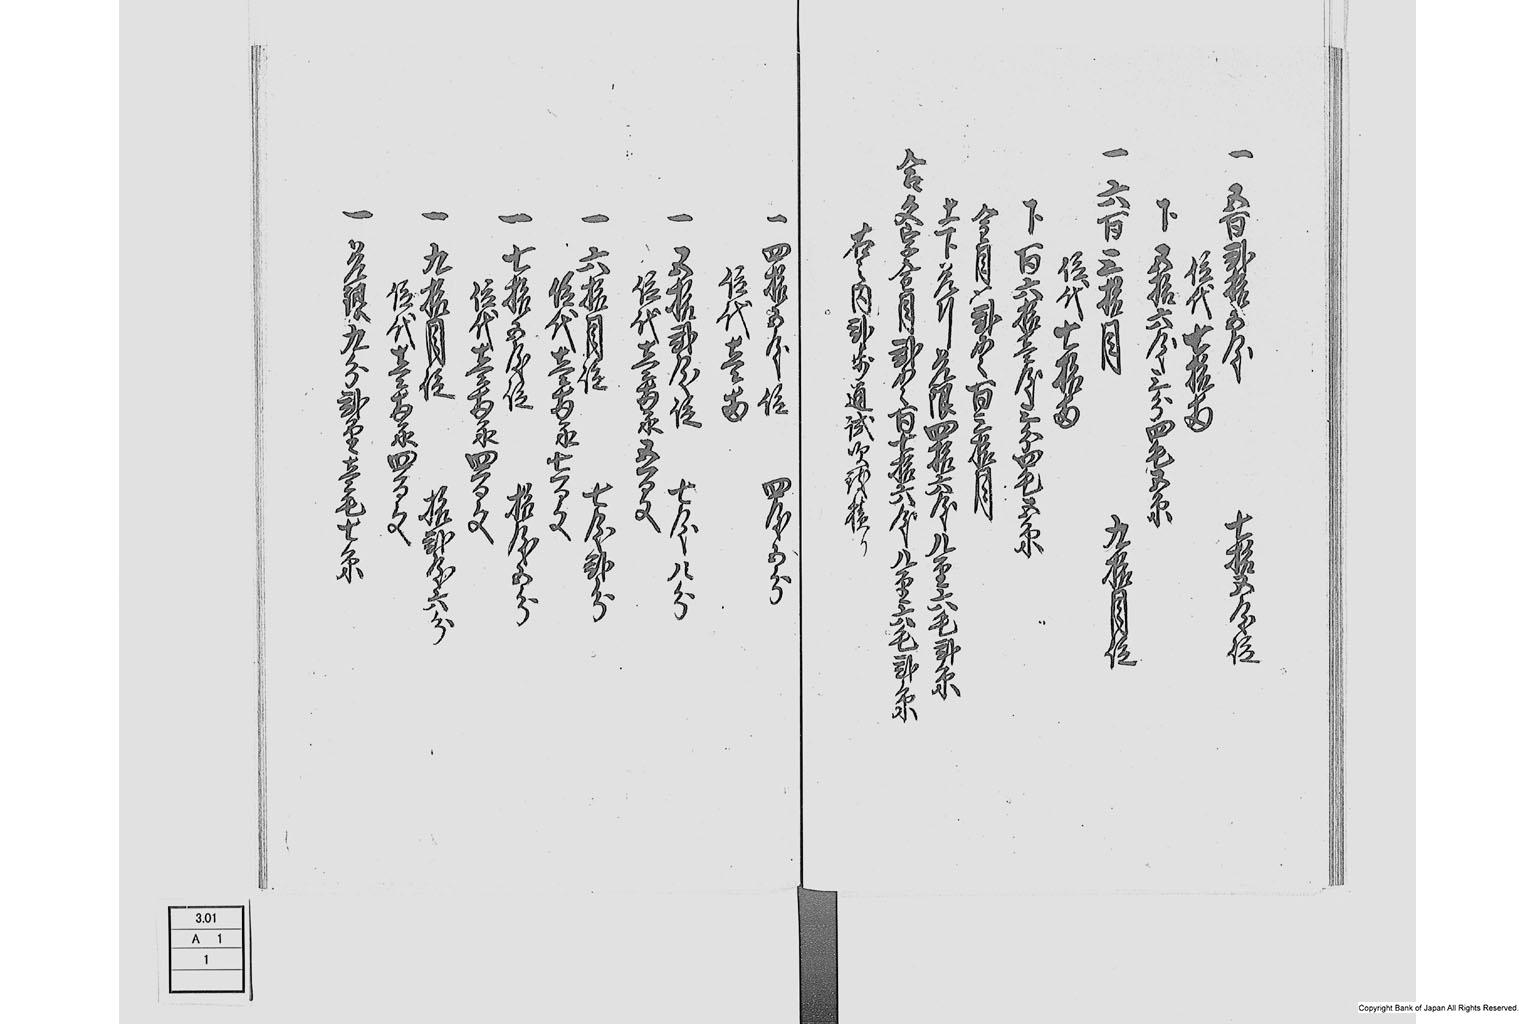 一 五百弐拾五匁 七拾五匁位
位代七拾両
下 五拾六匁三分四毛五糸
一 六百三拾目 九拾目位
位代七拾両
下 百六拾壱匁三分四毛五糸
合目〆弐貫百三拾目
上下差引差限四拾六匁八厘六毛弐糸
合文字合目弐貫百七拾六匁八厘六毛弐糸
右之内弐歩通試吹残積り
一 四拾五匁位 四匁五分
位代壱両
一 五拾弐匁位 七匁八分
位代壱両永五百文
一 六拾目位 七匁弐分
位代壱両永七百文
一 七拾五匁位 拾匁五分
位代壱両永四百文
一 九拾目位 拾弐匁六分
位代壱両永四百文
一 差限九分弐厘壱毛七糸
3.01
A 1
1
Copyright Bank of Japan All Rights Reserved.